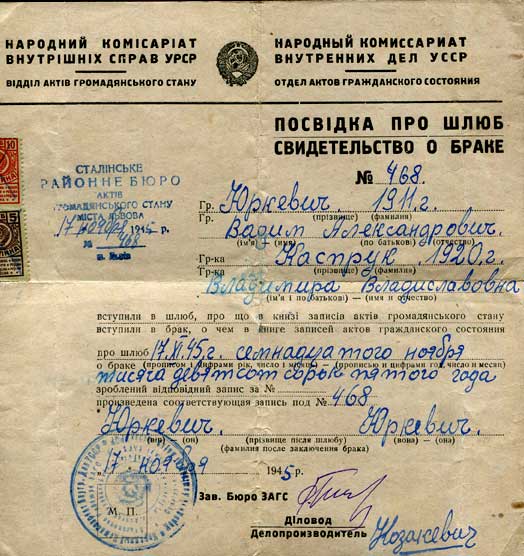 НАРОДНИЙ КОМІСАРІАТ
ВНУТРІШНІХ СПРАВ УРСР
ВІДДІЛ АКТІВ ГРОМАДЯНСЬКОГО СТАНУ
НАРОДНЫЙ КОМИССАРИАТ
ВНУТРЕННИХ ДЕЛ УССР
ОТДЕЛ АКТОВ ГРАЖДАНСКОГО СОСТОЯНИЯ
ПОСВІДКА ПРО ШЛЮБ
СВИДЕТЕЛЬСТВО О БРАКЕ
№ 468.
СТАЛІНСЬКЕ
РАЙОННЕ БЮРО
АКТІВ
ГРОМАДЯНСЬКОГО СТАНУ
МІСТА ЛЬВОВА
17 ноября 1945 р.
№ 468
м. Львів
Гр. Юркевич. 1911 г.
Гр. (прізвище) (фамилия)
Вадим Александрович.
(ім'я) (имя) (по батькові) (отчество)
Гр-ка Каструк 1920 г.
Гр-ка (прізвище) (фамилия)
Владимира Владиславовна
(ім'я і по батькові) — (имя и отчество)
вступили в шлюб, про що в книзі записів актів громадянського стану
вступили в брак, о чем в книге записей актов гражданского состояния
про шлюб 17.XI.45 г. семнадцатого ноября
о браке (прописом і цифрами рік, число і місяць) (прописью и цифрами год, число и месяц)
тысяча девятсот сорок пятого года
зроблений відповідний запис за №
произведена соответствующая запись под № 468
Юркевич. Юркевич.
(він) (он) (прізвище після шлюбу) (вона) — (она)
(фамилия после заключения брака)
"17" ноября 1945 р.
Зав. Бюро ЗАГС
М. П.
Діловод
Делопроизводитель Козакевич